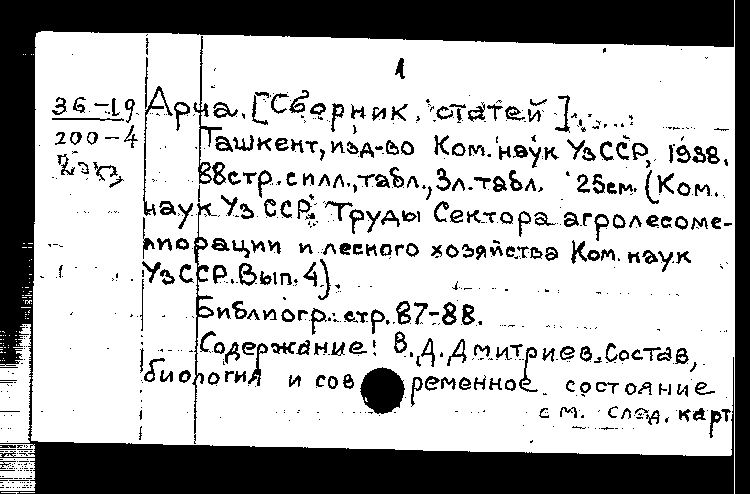 1
36-19 Арча. [Сборник статей]
200-4 Ташкент, изд-во Ком. наук УзССР, 1938.
2экз
88стр. с илл., табл., 3л. табл. 25см. (Ком.
наук Уз ССР. Труды Сектора агролесоме-
лиорации и лесного хозяйства Ком. наук
УзССР. Вып. 4).
Библиогр.: стр. 87-88.
Содержание: В. Д. Дмитриев. Состав,
биология и современное состояние
см. след. карт